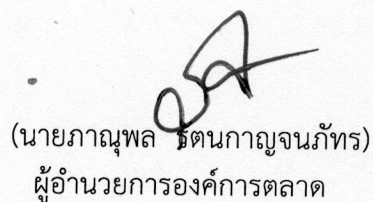 (นายภาณุพล รัตนกาญจนภัทร)
ผู้อำนวยการองค์การตลาด